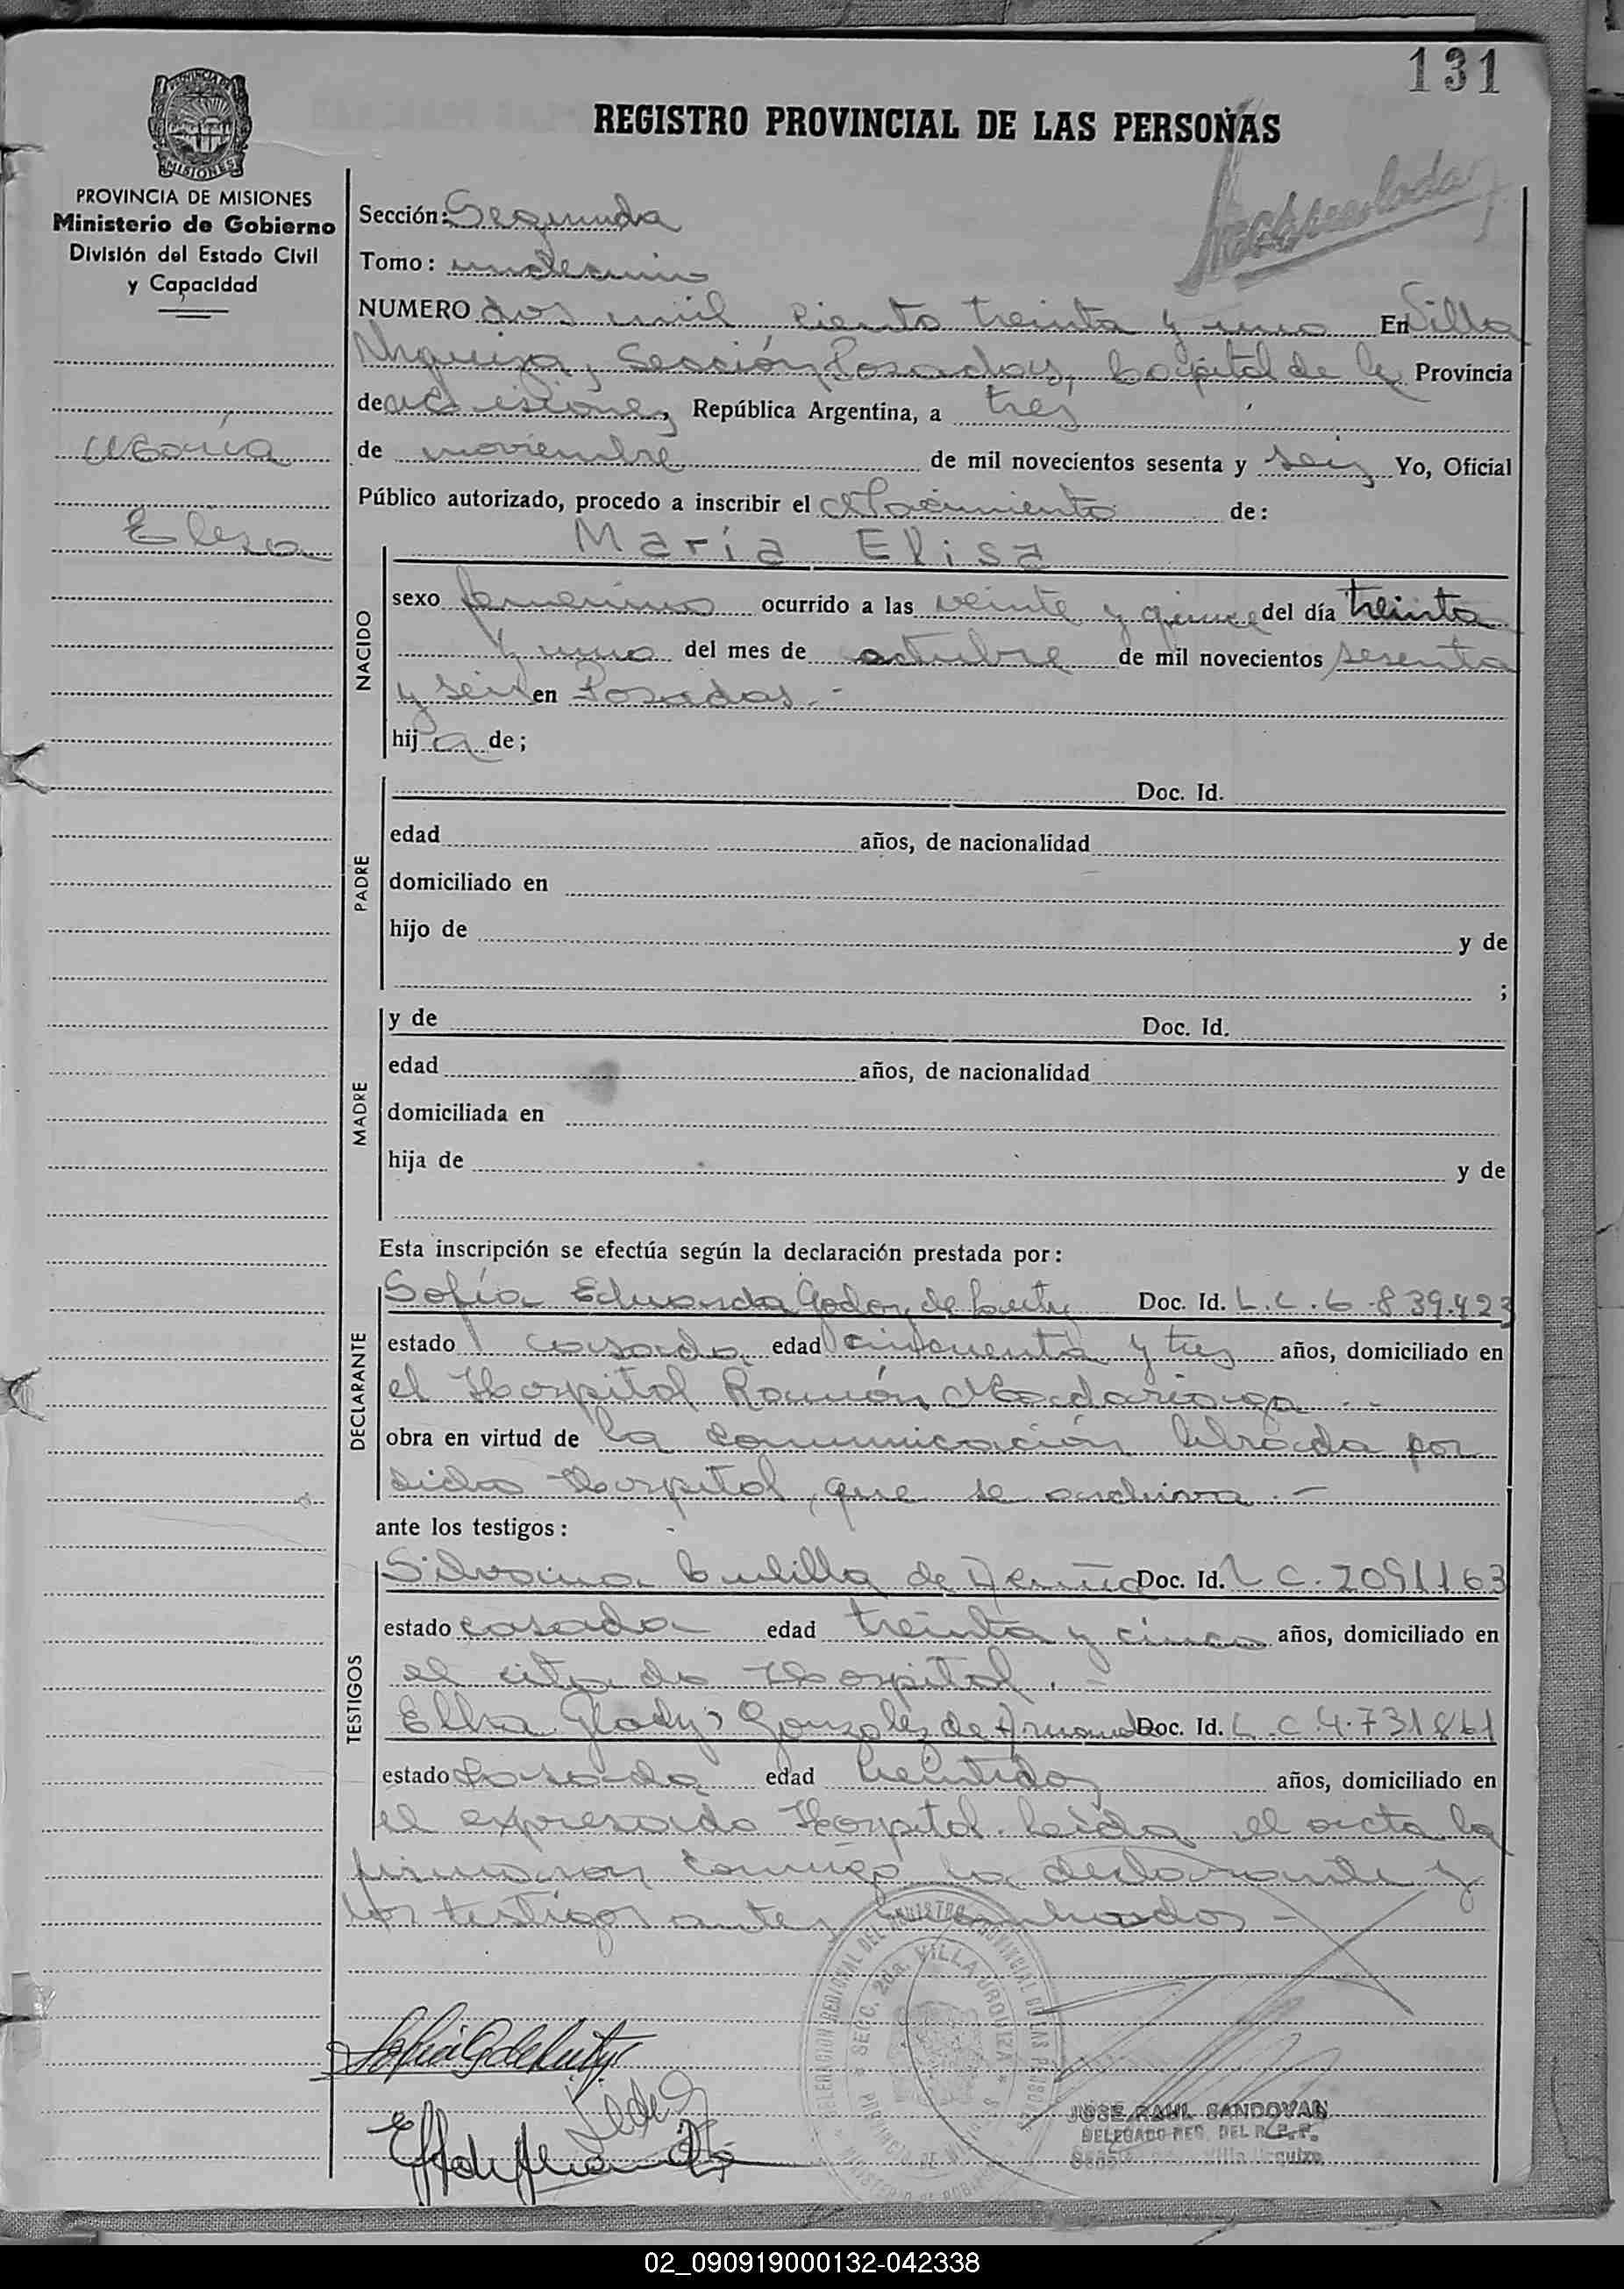 131
REGISTRO PROVINCIAL DE LAS PERSONAS
PROVINCIA DE MISIONES
Ministerio de Gobierno
División del Estado Civil
y Capacidad
María
Elisa
Sección: Segunda
Tomo: undecimo
NUMERO dos mil ciento treinta y uno En Villa
Urquiza, Sección Posadas, Capital de la Provincia
de Misiones, República Argentina, a tres
de noviembre de mil novecientos sesenta y seis Yo, Oficial
Público autorizado, procedo a inscribir el Nacimiento de:
NACIDO
María Elisa
sexo femenino ocurrido a las veinte y quince del día treinta
y uno del mes de octubre de mil novecientos sesenta
y seis en Posadas.-
hija de;
PADRE
Doc. Id.
edad años, de nacionalidad
domiciliado en
hijo de y de
;
MADRE
y de Doc. Id.
edad años, de nacionalidad
domiciliada en
hija de y de
Esta inscripción se efectúa según la declaración prestada por:
DECLARANTE
Sofía Eduarda Godoy de Doc. Id. L.C. 6.839.423
estado casada edad cincuenta y tres años, domiciliado en
el Hospital Ramón Madariaga.-
obra en virtud de la comunicación librada por
dicho Hospital, que se archiva.-
ante los testigos:
TESTIGOS
Silvina de Doc. Id. L C. 2091163
estado casada edad treinta y cinco años, domiciliado en
el citado Hospital.-
Elba Gladys Gonzalez de Doc. Id. L.C 4.731861
estado casada edad años, domiciliado en
el expresado Hospital. Leida el acta la
firmaron conmigo la declarante y
los testigos antes nombrados-
DELEGACION REGIONAL DEL REGISTRO PROVINCIAL DE LAS PERSONAS
SECC. 2da. VILLA URQUIZA
PROVINCIA DE MISIONES
JOSE RAUL SANDOVAL
DELEGADO REG. DEL R.P.P.
Villa Urquiza
02_090919000132-042338